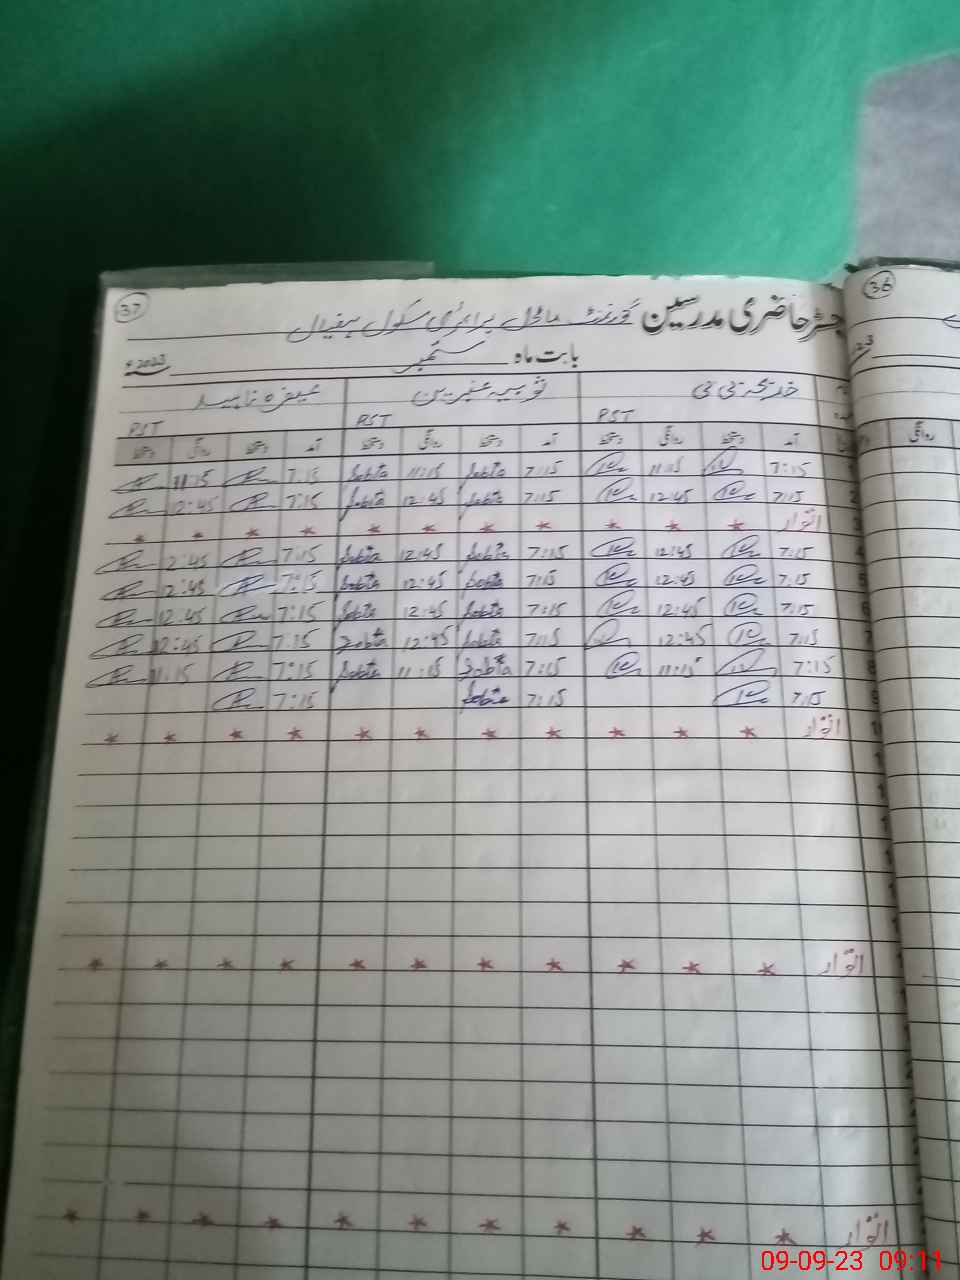 37
رجسٹر حاضری مدرسین گورنمنٹ ماڈل پرائمری سکول
36
بابت ماہ ستمبر 2023ء
خدیجہ بی بی ثوبیہ عنبرین ناہید
PST PST PST
آمد دستخط روانگی دستخط آمد دستخط روانگی دستخط آمد دستخط روانگی دستخط روانگی
7:15 11:15 7:15 Sobia 11:15 Sobia 7:15 11:15
2 7:15 12:45 7:15 Sobia 12:45 Sobia 7:15 12:45
اتوار * * * * * * * * * * *
4 7:15 12:45 7:15 Sobia 12:45 Sobia 7:15 2:45
5 7:15 12:45 7:15 Sobia 12:45 Sobia 7:15 2:45
6 7:15 12:45 7:15 Sobia 12:45 Sobia 7:15 12:45
7 7:15 12:45 7:15 Sobia 12:45 Sobia 7:15 12:45
8 7:15 11:15 7:15 Sobia 11:15 Sobia 7:15 11:15
9 7:15 7:15 Sobia 7:15
اتوار * * * * * * * * * * *
اتوار * * * * * * * * * * *
اتوار * * * * * * * * * * *
09-09-23 09:11